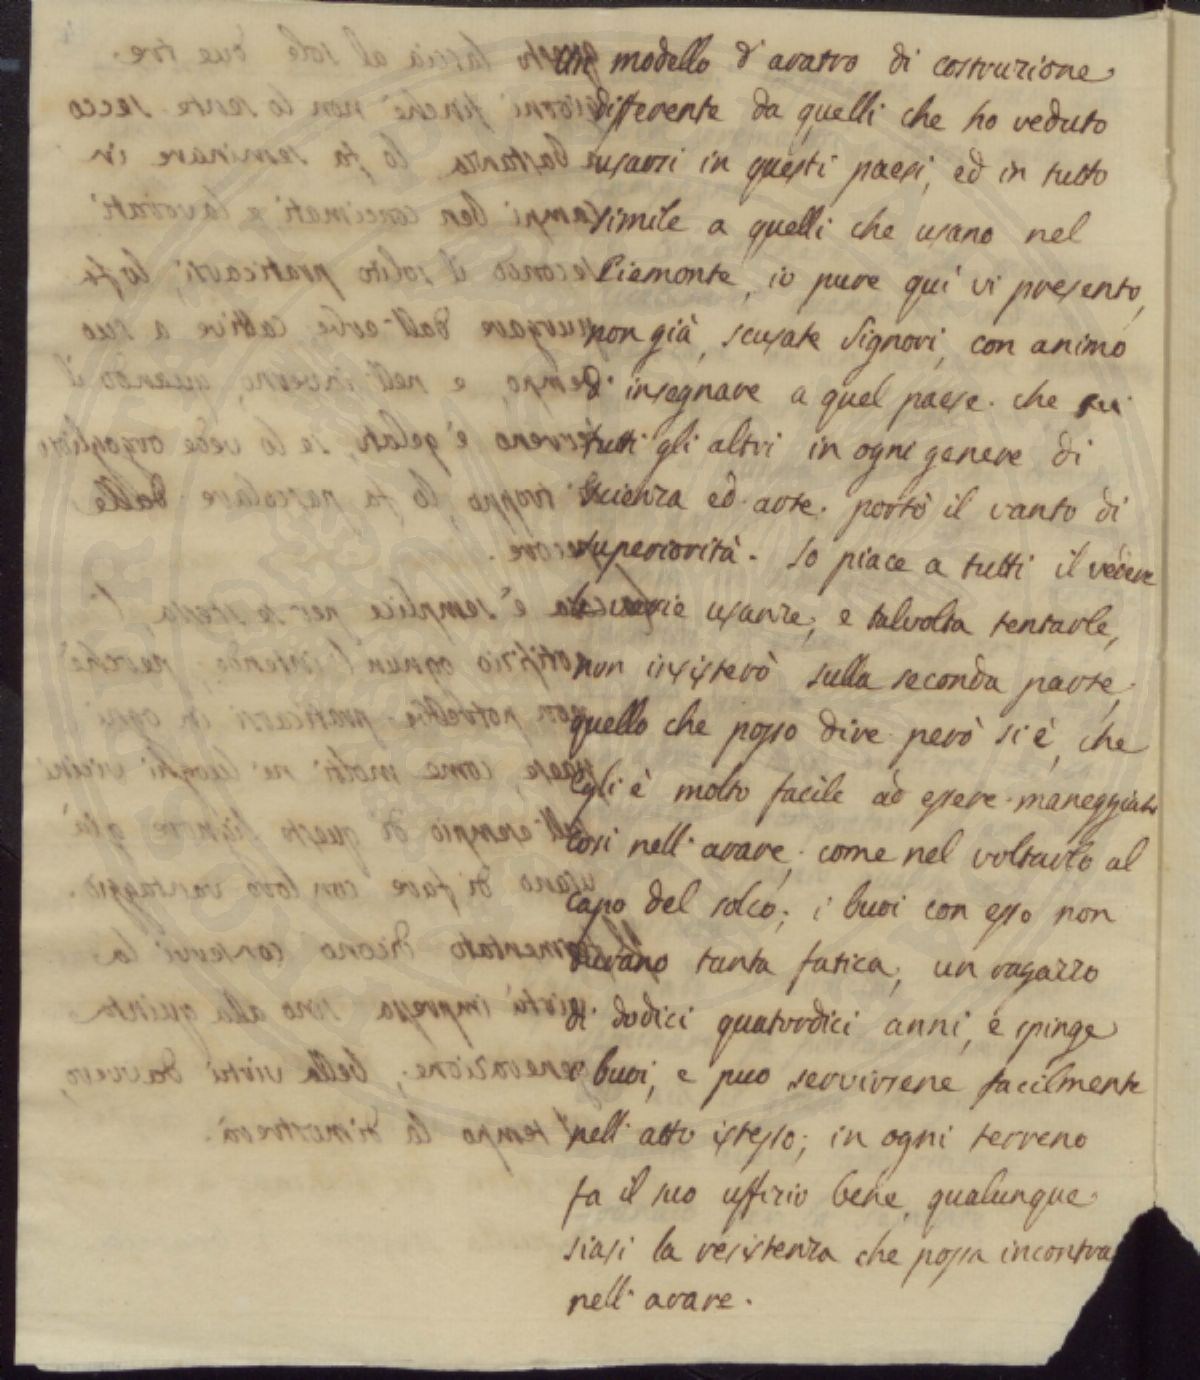 Un modello d'aratro di costruzione
differente da quelli che ho veduto
usarsi in questi paesi, ed in tutto
simile a quelli che usano nel
Piemonte, io pure quì vi presento,
non già, scusate Signori, con animo
d'insegnare a quel paese che su
tutti gli altri in ogni genere di
scienza ed arte portò il vanto di
superiorità. So piace a tutti il vedere
le varie usanze, e talvolta tentarle,
non insisterò sulla seconda parte,
quello che posso dire però si è, che
Egli è molto facile ad essere maneggiato
così nell'arare, come nel voltarlo al
capo del solco; i buoi con esso non
durano tanta fatica, un ragazzo
di dodici quatordici anni, e spinge
i buoi, e puo servirsene facilmente
nell'atto istesso; in ogni terreno
fa il suo uffizio bene, qualunque
siasi la resistenza che possa incontra
nell'arare.